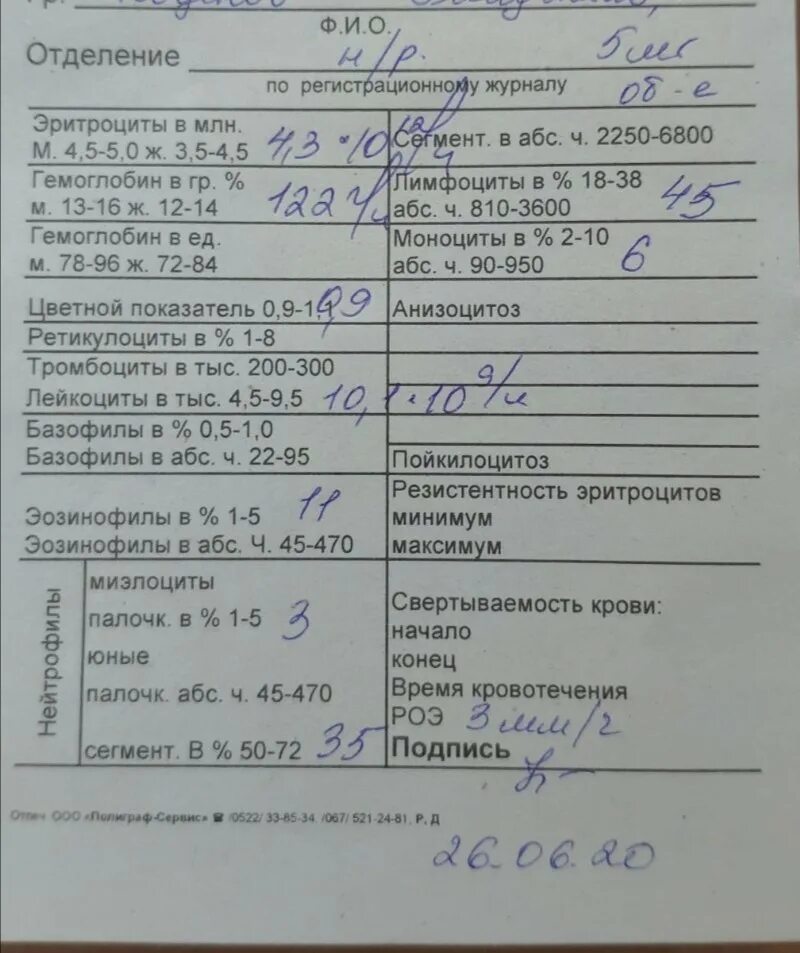 Ф.И.О.
Отделение н/р. 5 мг
по регистрационному журналу об-е
Эритроциты в млн.
М. 4,5-5,0 ж. 3,5-4,5 4,3 · 10 12/л
Сегмент. в абс. ч. 2250-6800
Гемоглобин в гр. %
м. 13-16 ж. 12-14 122 г/л
Лимфоциты в % 18-38 45
абс. ч. 810-3600
Гемоглобин в ед.
м. 78-96 ж. 72-84
Моноциты в % 2-10 6
абс. ч. 90-950
Цветной показатель 0,9-1,1 0,9
Анизоцитоз
Ретикулоциты в % 1-8
Тромбоциты в тыс. 200-300
Лейкоциты в тыс. 4,5-9,5 10,1 · 10 9/л
Базофилы в % 0,5-1,0
Базофилы в абс. ч. 22-95
Пойкилоцитоз
Эозинофилы в % 1-5 11
Эозинофилы в абс. Ч. 45-470
Резистентность эритроцитов
минимум
максимум
Нейтрофилы
миэлоциты
палочк. в % 1-5 3
юные
палочк. абс. ч. 45-470
сегмент. В % 50-72 35
Свертываемость крови:
начало
конец
Время кровотечения
РОЭ 3 мм/г
Подпись
ООО «Полиграф-Сервис» ☎ /0522/ 33-85-34, /067/ 521-24-81, Р. Д
26.06.20